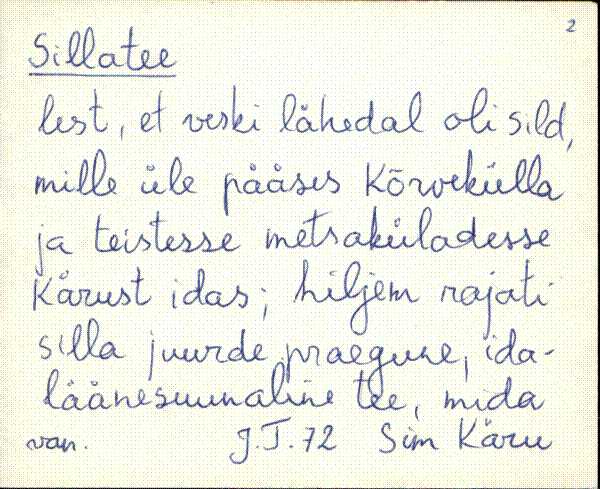 2
Sillatee
lest, et veski lähedal oli sild,
mille üle pääses Kõrvekülla
ja teistesse metsaküladesse
Kärust idas; hiljem rajati
silla juurde praegune, ida-
läänesuunaline tee, mida
van. J.T. 72 Sim Käru